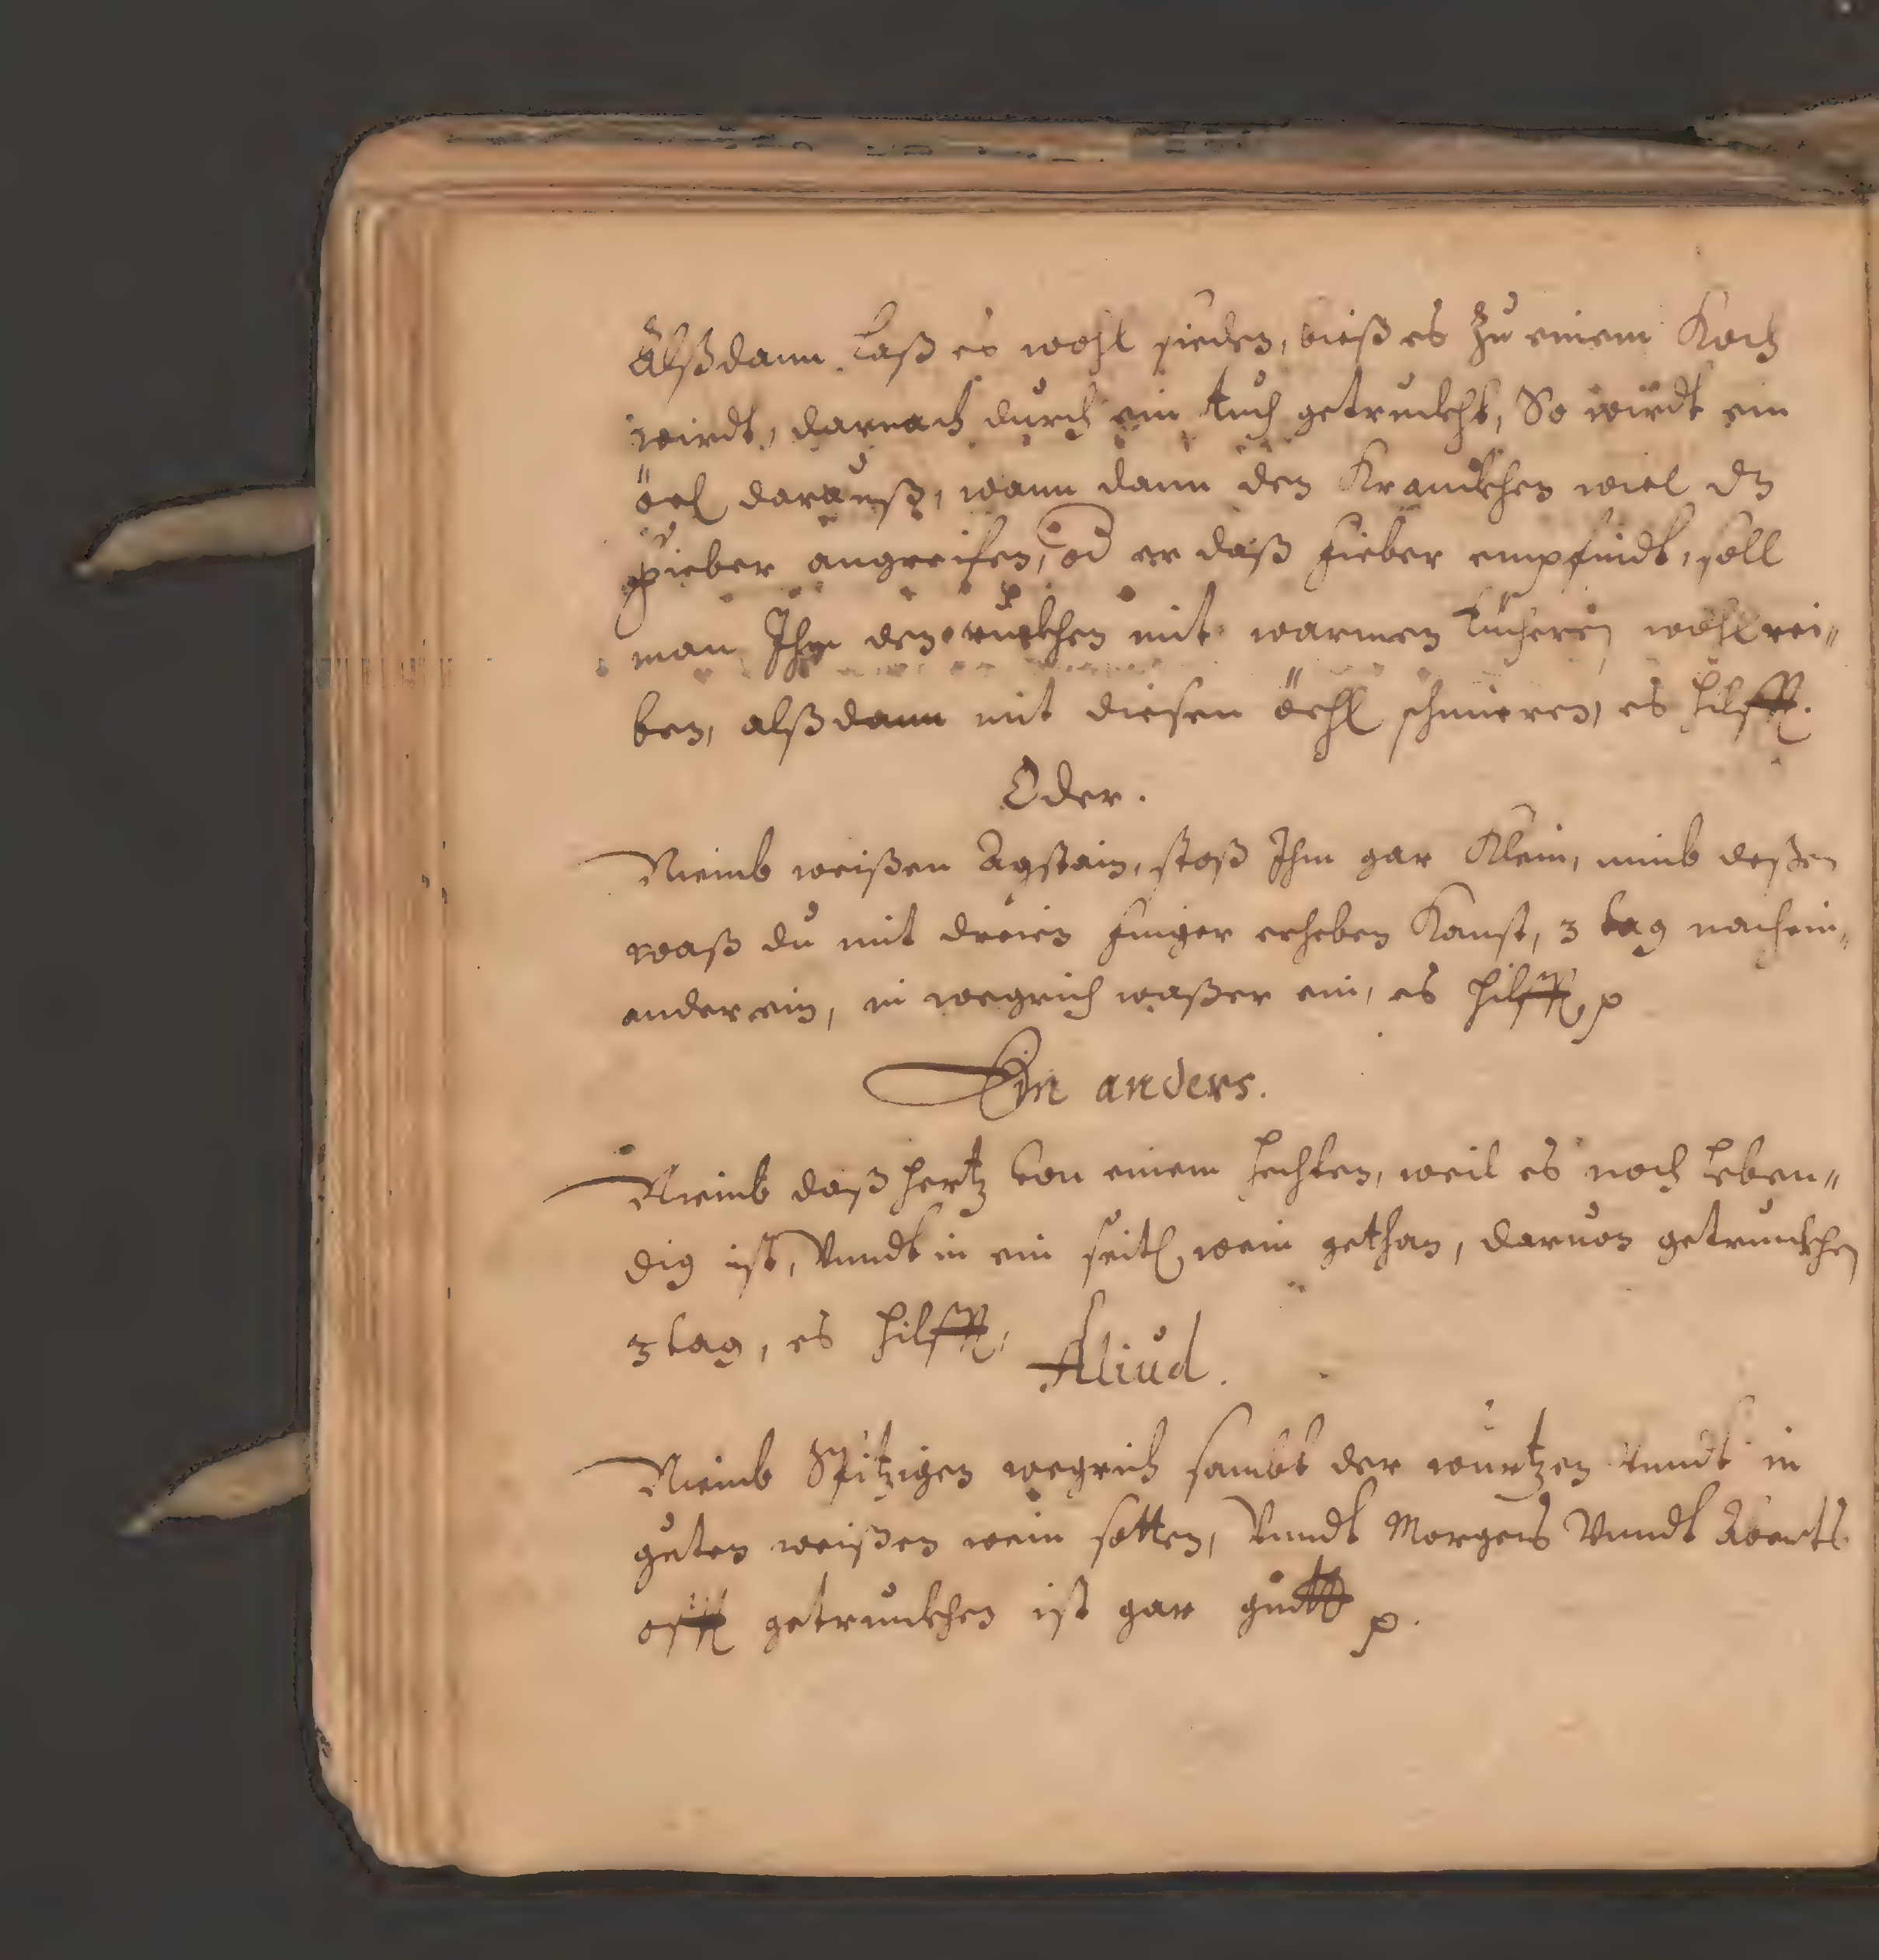 Alßdann Laß es wohl sieden, bieß es Zu einem Koch
wirdt, darnach durch ein tuch getruckht, So wirdt ein
öel darauß, wann dann den Kranckhen wiel dz
Fieber angreifen, od er daß Fieber empfindt, soll
man Ihm den ruckhen mit warmen Tücheren wohl rei„
ben, alßdann mit diesen öehl schmieren, es hilfft.
Oder.
Niemb weißen Agstain, stoß Ihm gar Klein, nimb deßen
waß du mit dreien finger erheben Kanst, 3 tag nachein„
ander ein, in wegrich waßer ein, es hilfft p
Ein anders.
Niemb daß hertz von einem hechten, weil es noch Leben„
dig ist, Vnndt in ein seitl wein gethan, daruon getrunckhen
3 tag, es hilfft,
Aliud.
Niemb Spitzigen wegrich sambt der wurtzen Vnndt in
guten weißen wein sotten, Vnndt Morgens Vnndt Abents
offt getrunckhen ist gar gutt p.